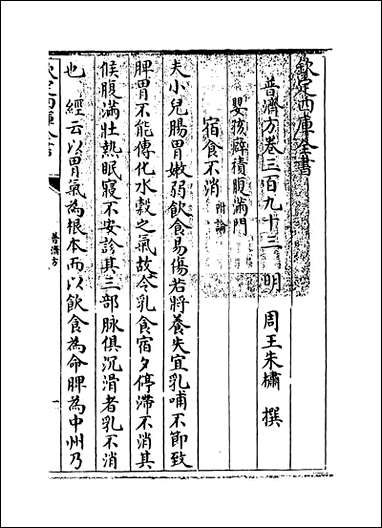 欽定四庫全書
普濟方卷三百九十三　明　周王朱橚　撰
嬰孩癖積腹滿門
宿食不消　附論
夫小兒腸胃嫩弱飲食易傷若將養失宜乳哺不節致
脾胃不能傳化水穀之氣故令乳食宿夕停滯不消其
候腹滿壯熱眠寢不安診其三部脉俱沉滑者乳不消
也　經云以胃氣為根本而以飲食為命脾為中州乃
欽定四庫全書
普濟方
一